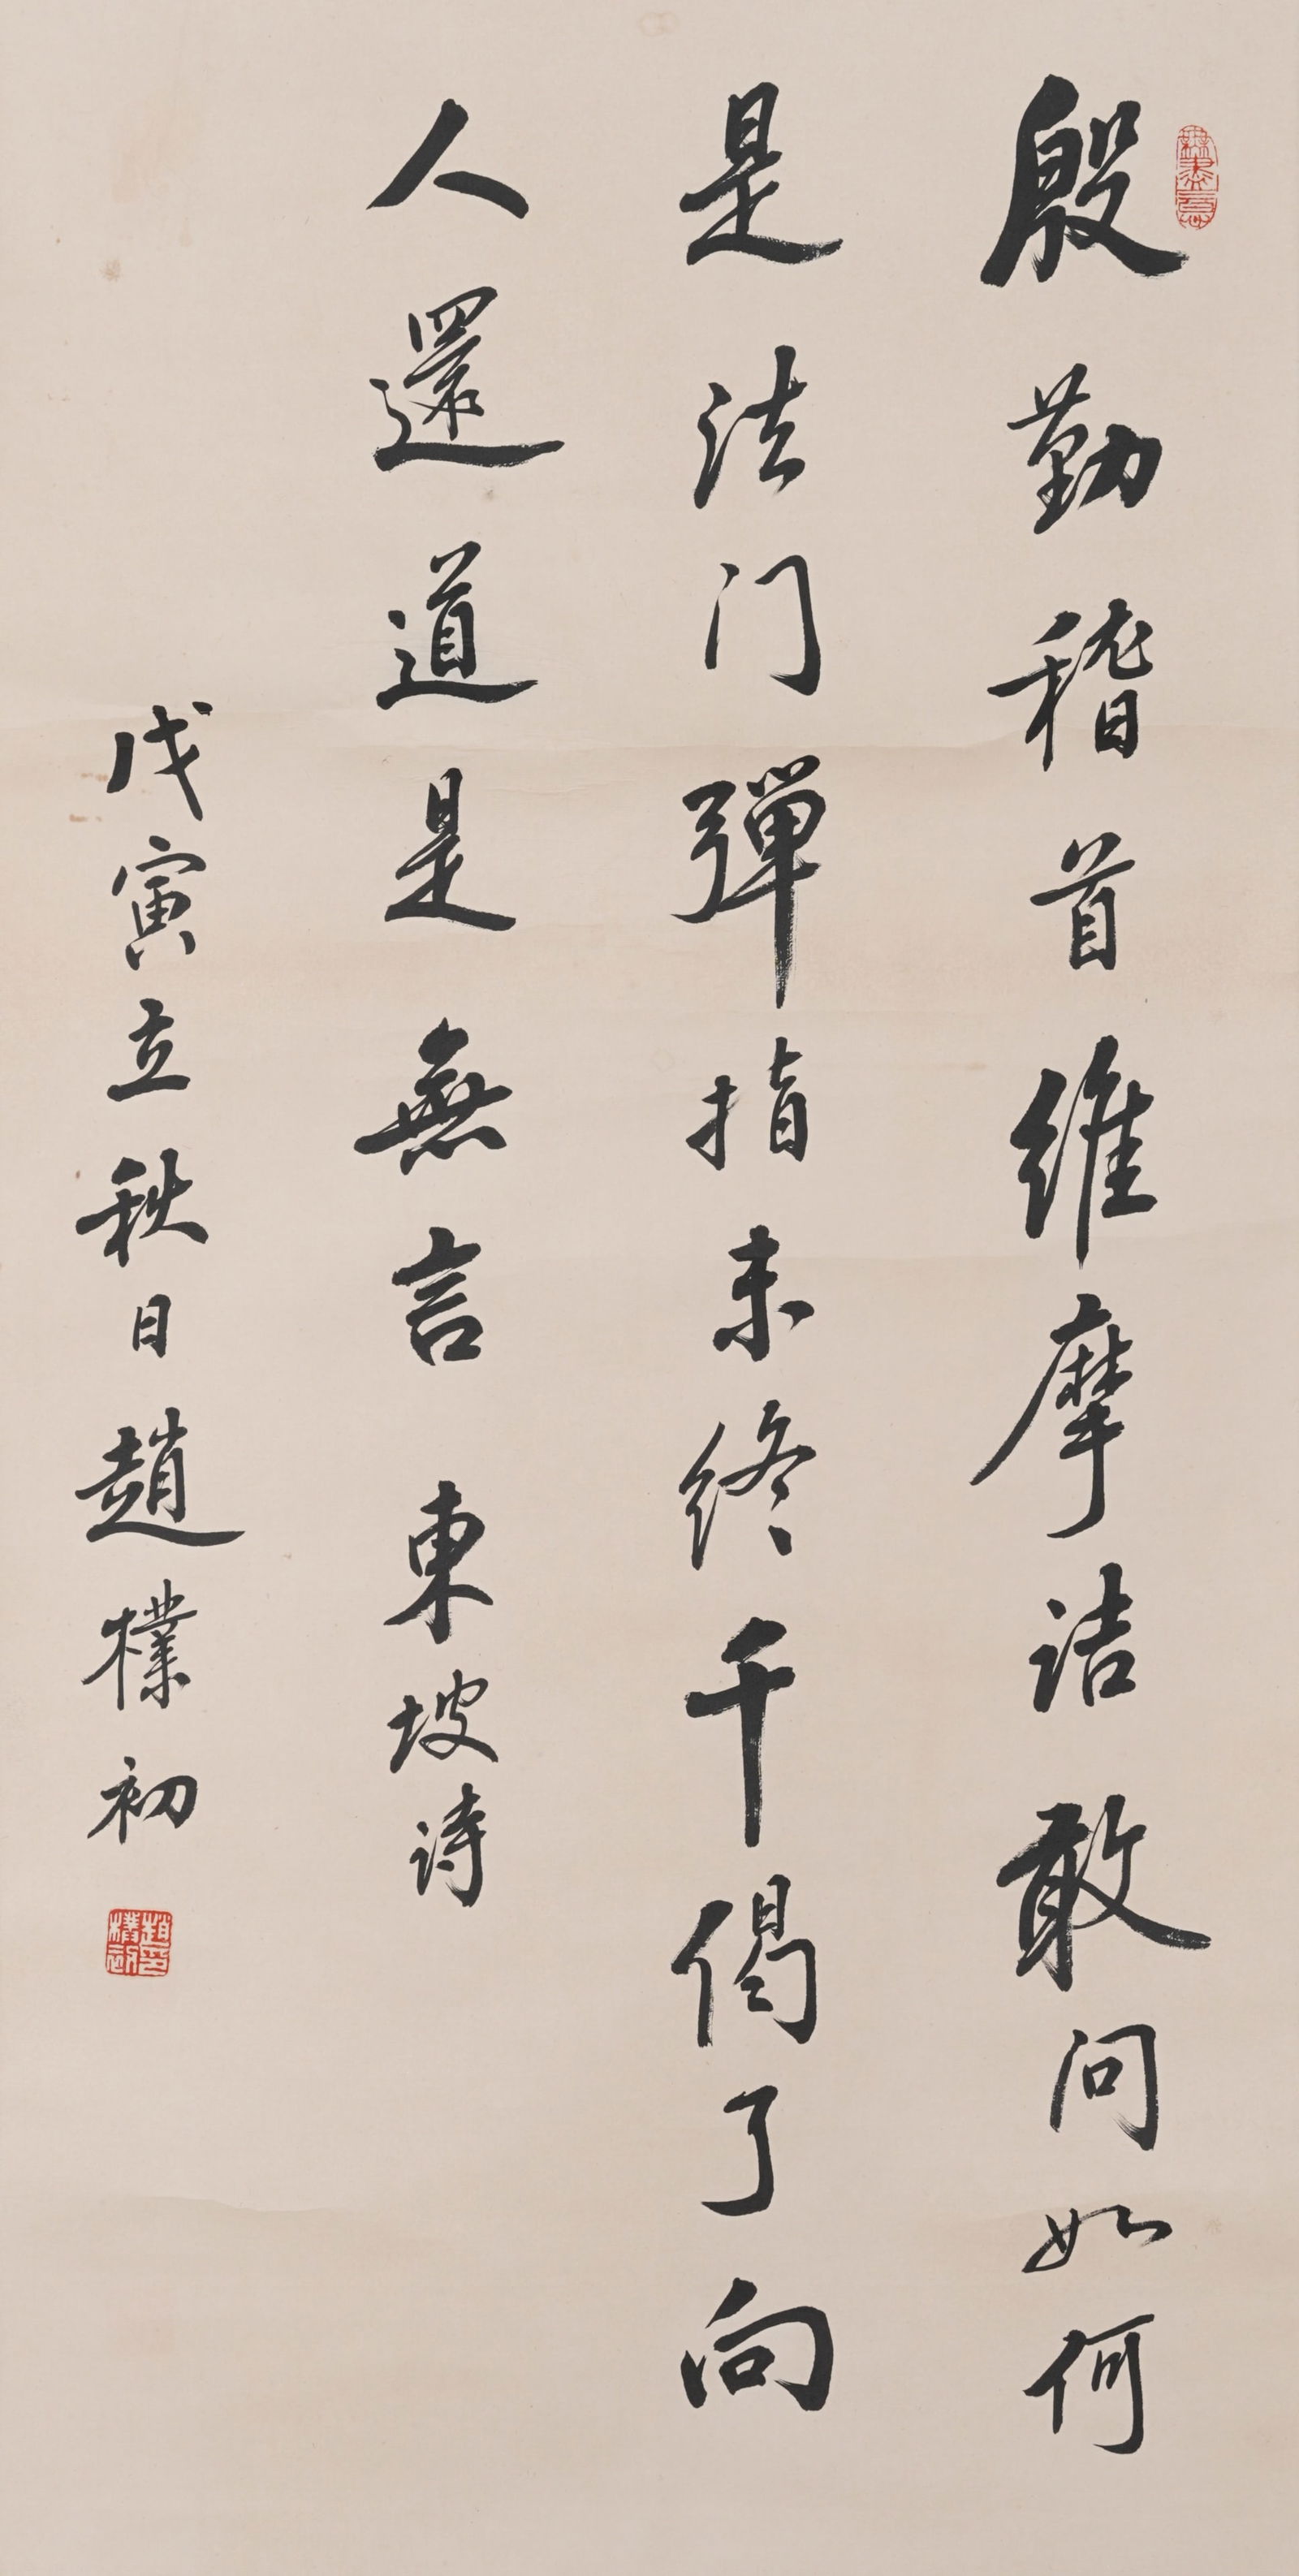 殷勤稽首維摩詰敢问如何
是法门彈指未終千偈了向
人還道是無言 東坡詩
戊寅立秋日趙樸初
無盡意
趙樸初印